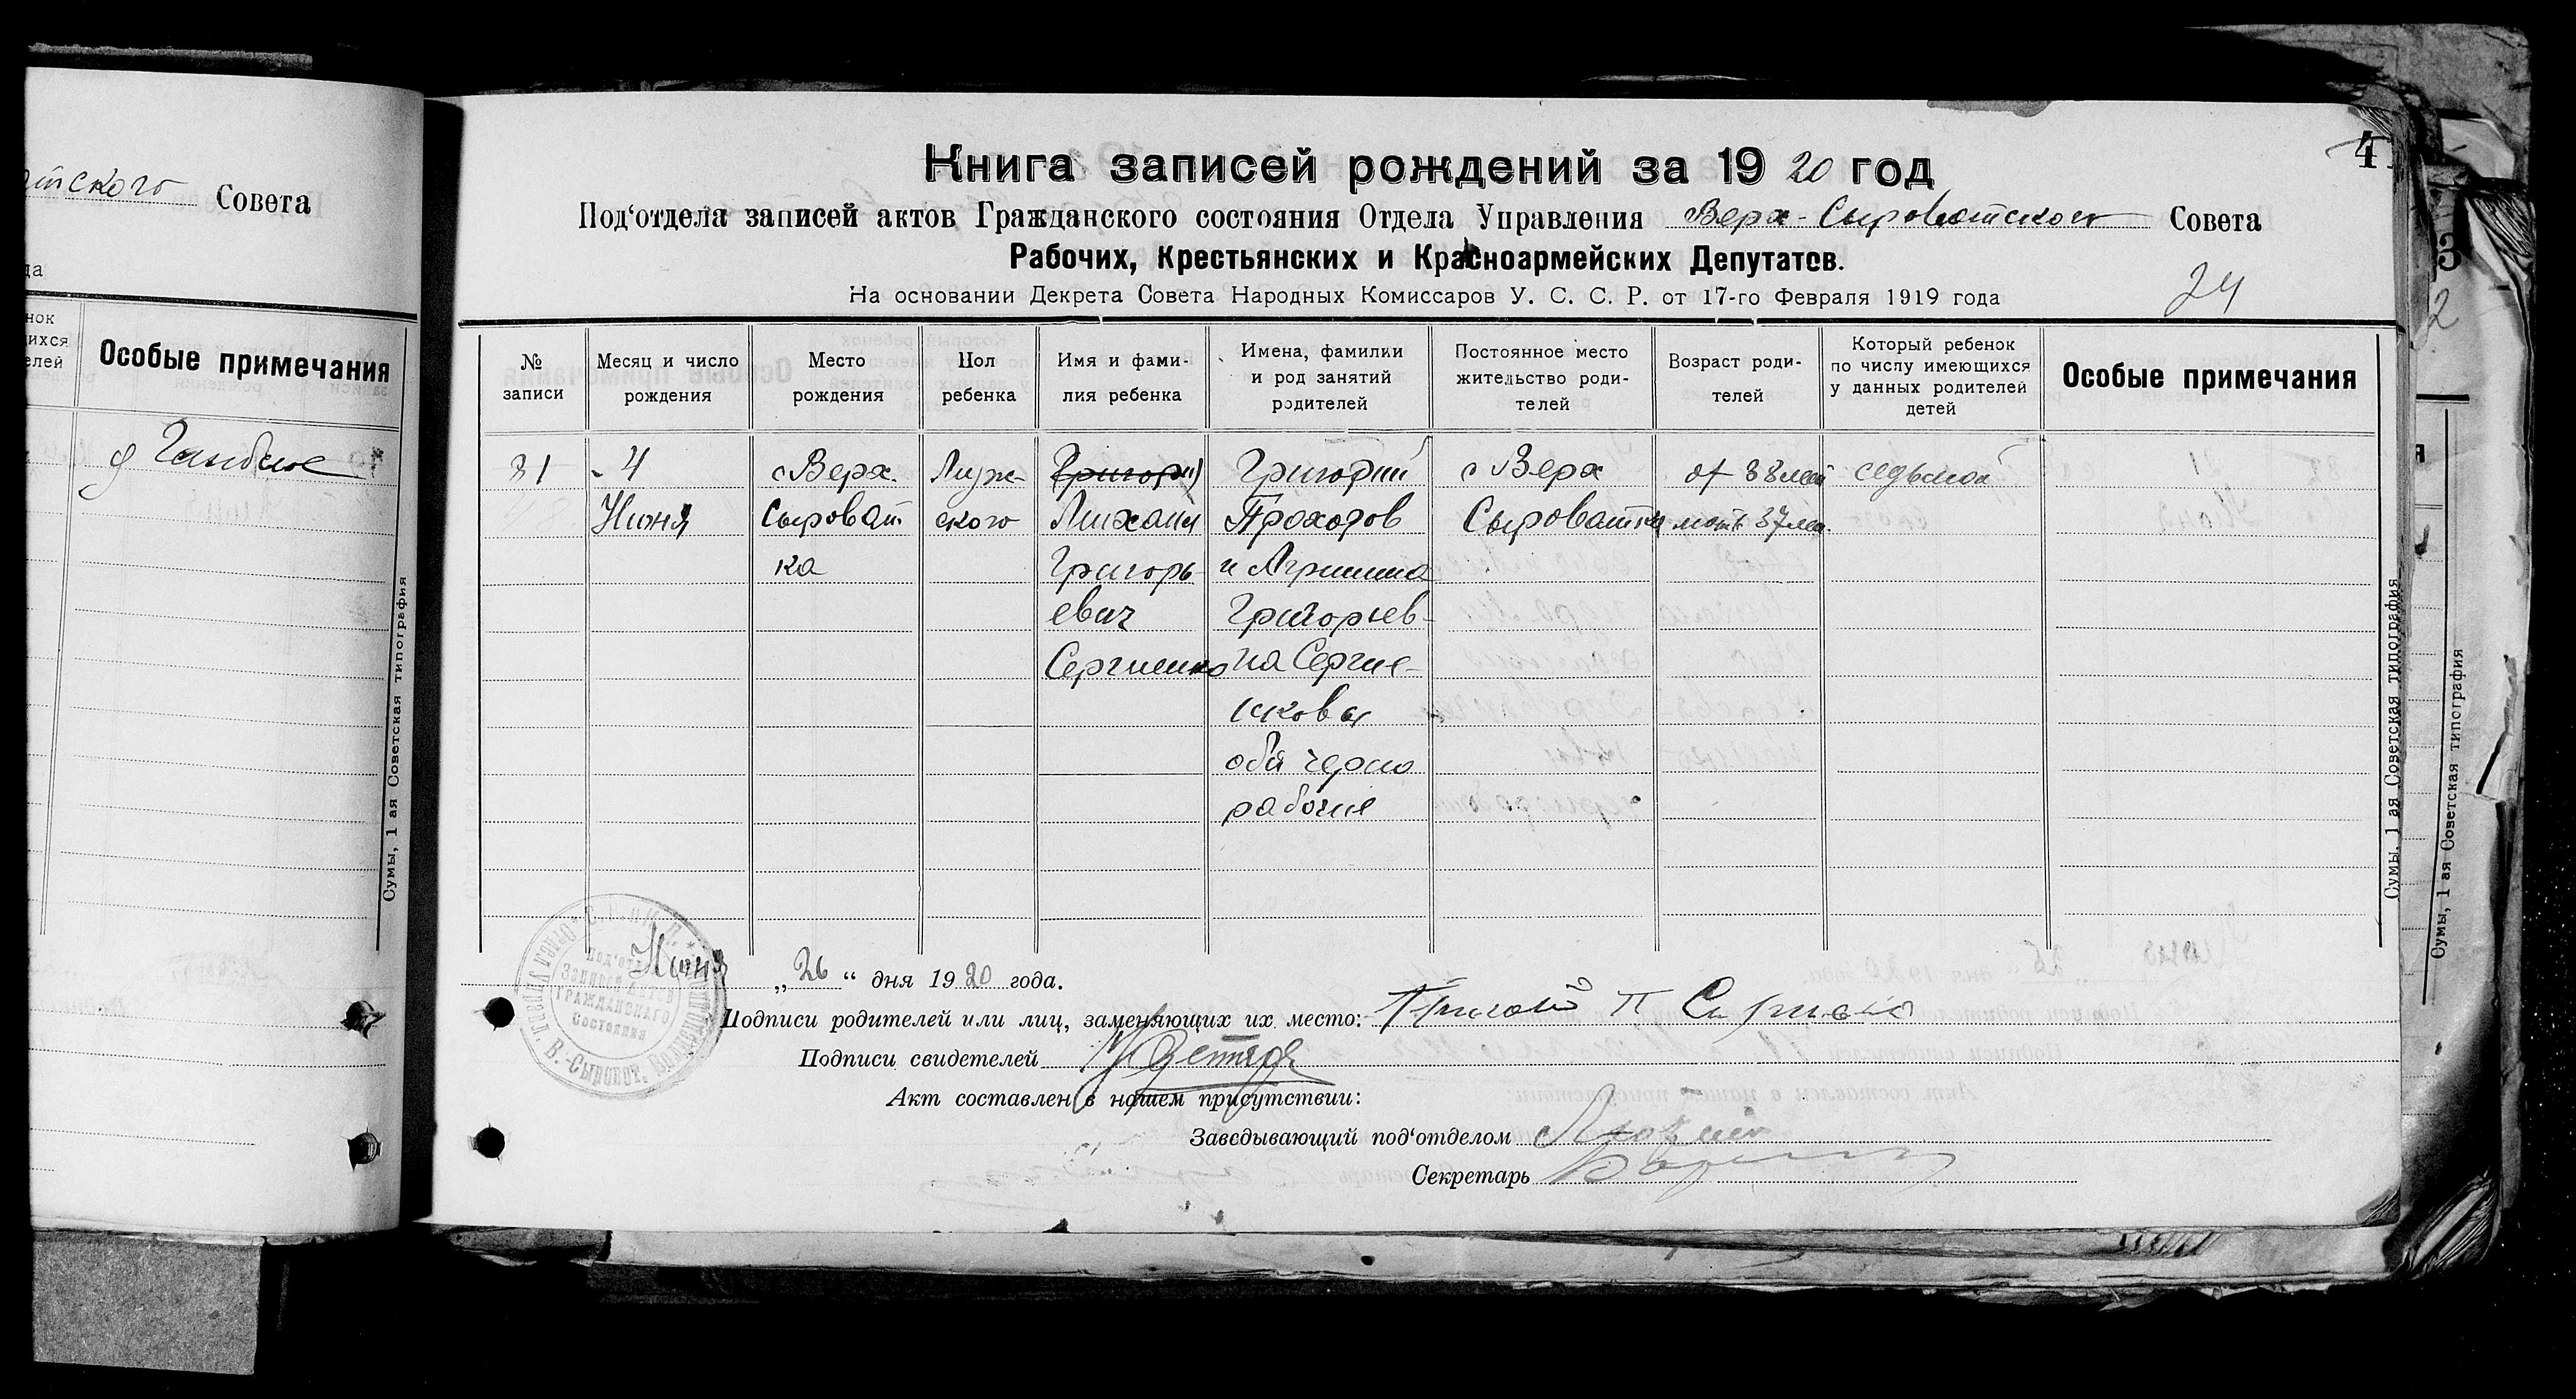 тского Совета
да
нок
ихся
елей
Особые примечания
Сумы, 1 ая Советская типография
4
Книга записей рождений за 1920 год
Под‘отдела записей актов Гражданского состояния Отдела Управления Верх-Сыроватского Совета
Рабочих, Крестьянских и Красноармейских Депутатов.
На основании Декрета Совета Народных Комиссаров У. С. С. Р. от 17-го Февраля 1919 года
24
№ записи
Месяц и число рождения
Место рождения
Пол ребенка
Имя и фами-
лия ребенка
Имена, фамилии
и род занятий
родителей
Постоянное место
жительство роди-
телей
Возраст роди-
телей
Который ребенок
по числу имеющихся
у данных родителей
детей
Особые примечания
31
4
Июня
с Верх.
Сыроват
ка
Муж-
ского
Григорий
Михаил
Григорь-
евич
Сергиенко
Григорий
Прохоров
и Агрипина
Григорьев-
на Сергие-
нковы
оба черно
рабочие
с Верх
Сыроватка
от 38 лет
мать 37 лет
седьмой
Июня „26“ дня 1920 года.
Подписи родителей или лиц, заменяющих их место:
Подписи свидетелей
Акт составлен в нашем присутствии:
Заведывающий под‘отделом
Секретарь
Под‘отдел
Записей Актов
Гражданского
Состояния
Сумы, 1 ая Советская типография
3
2
Сумы, 1 ая Советская типография